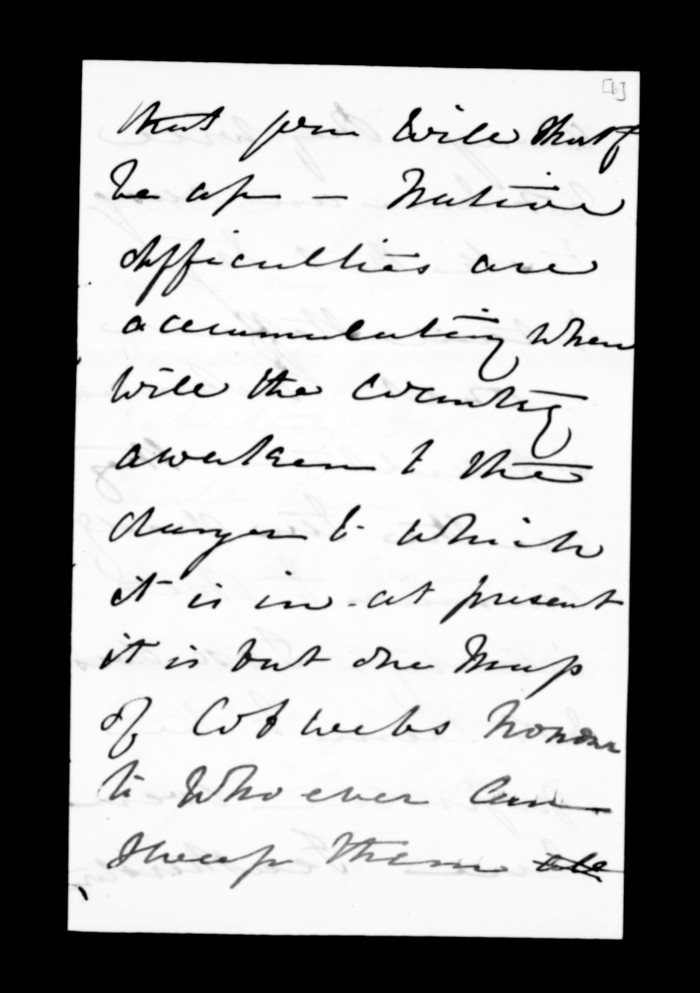 [6]
that you will shortly
be up — Native
difficulties are
accumulating when
will the country
awaken to the
danger to which
it is in - at present
it is but one Mass
of Cobwebs honour
to Who ever can
Sweep them